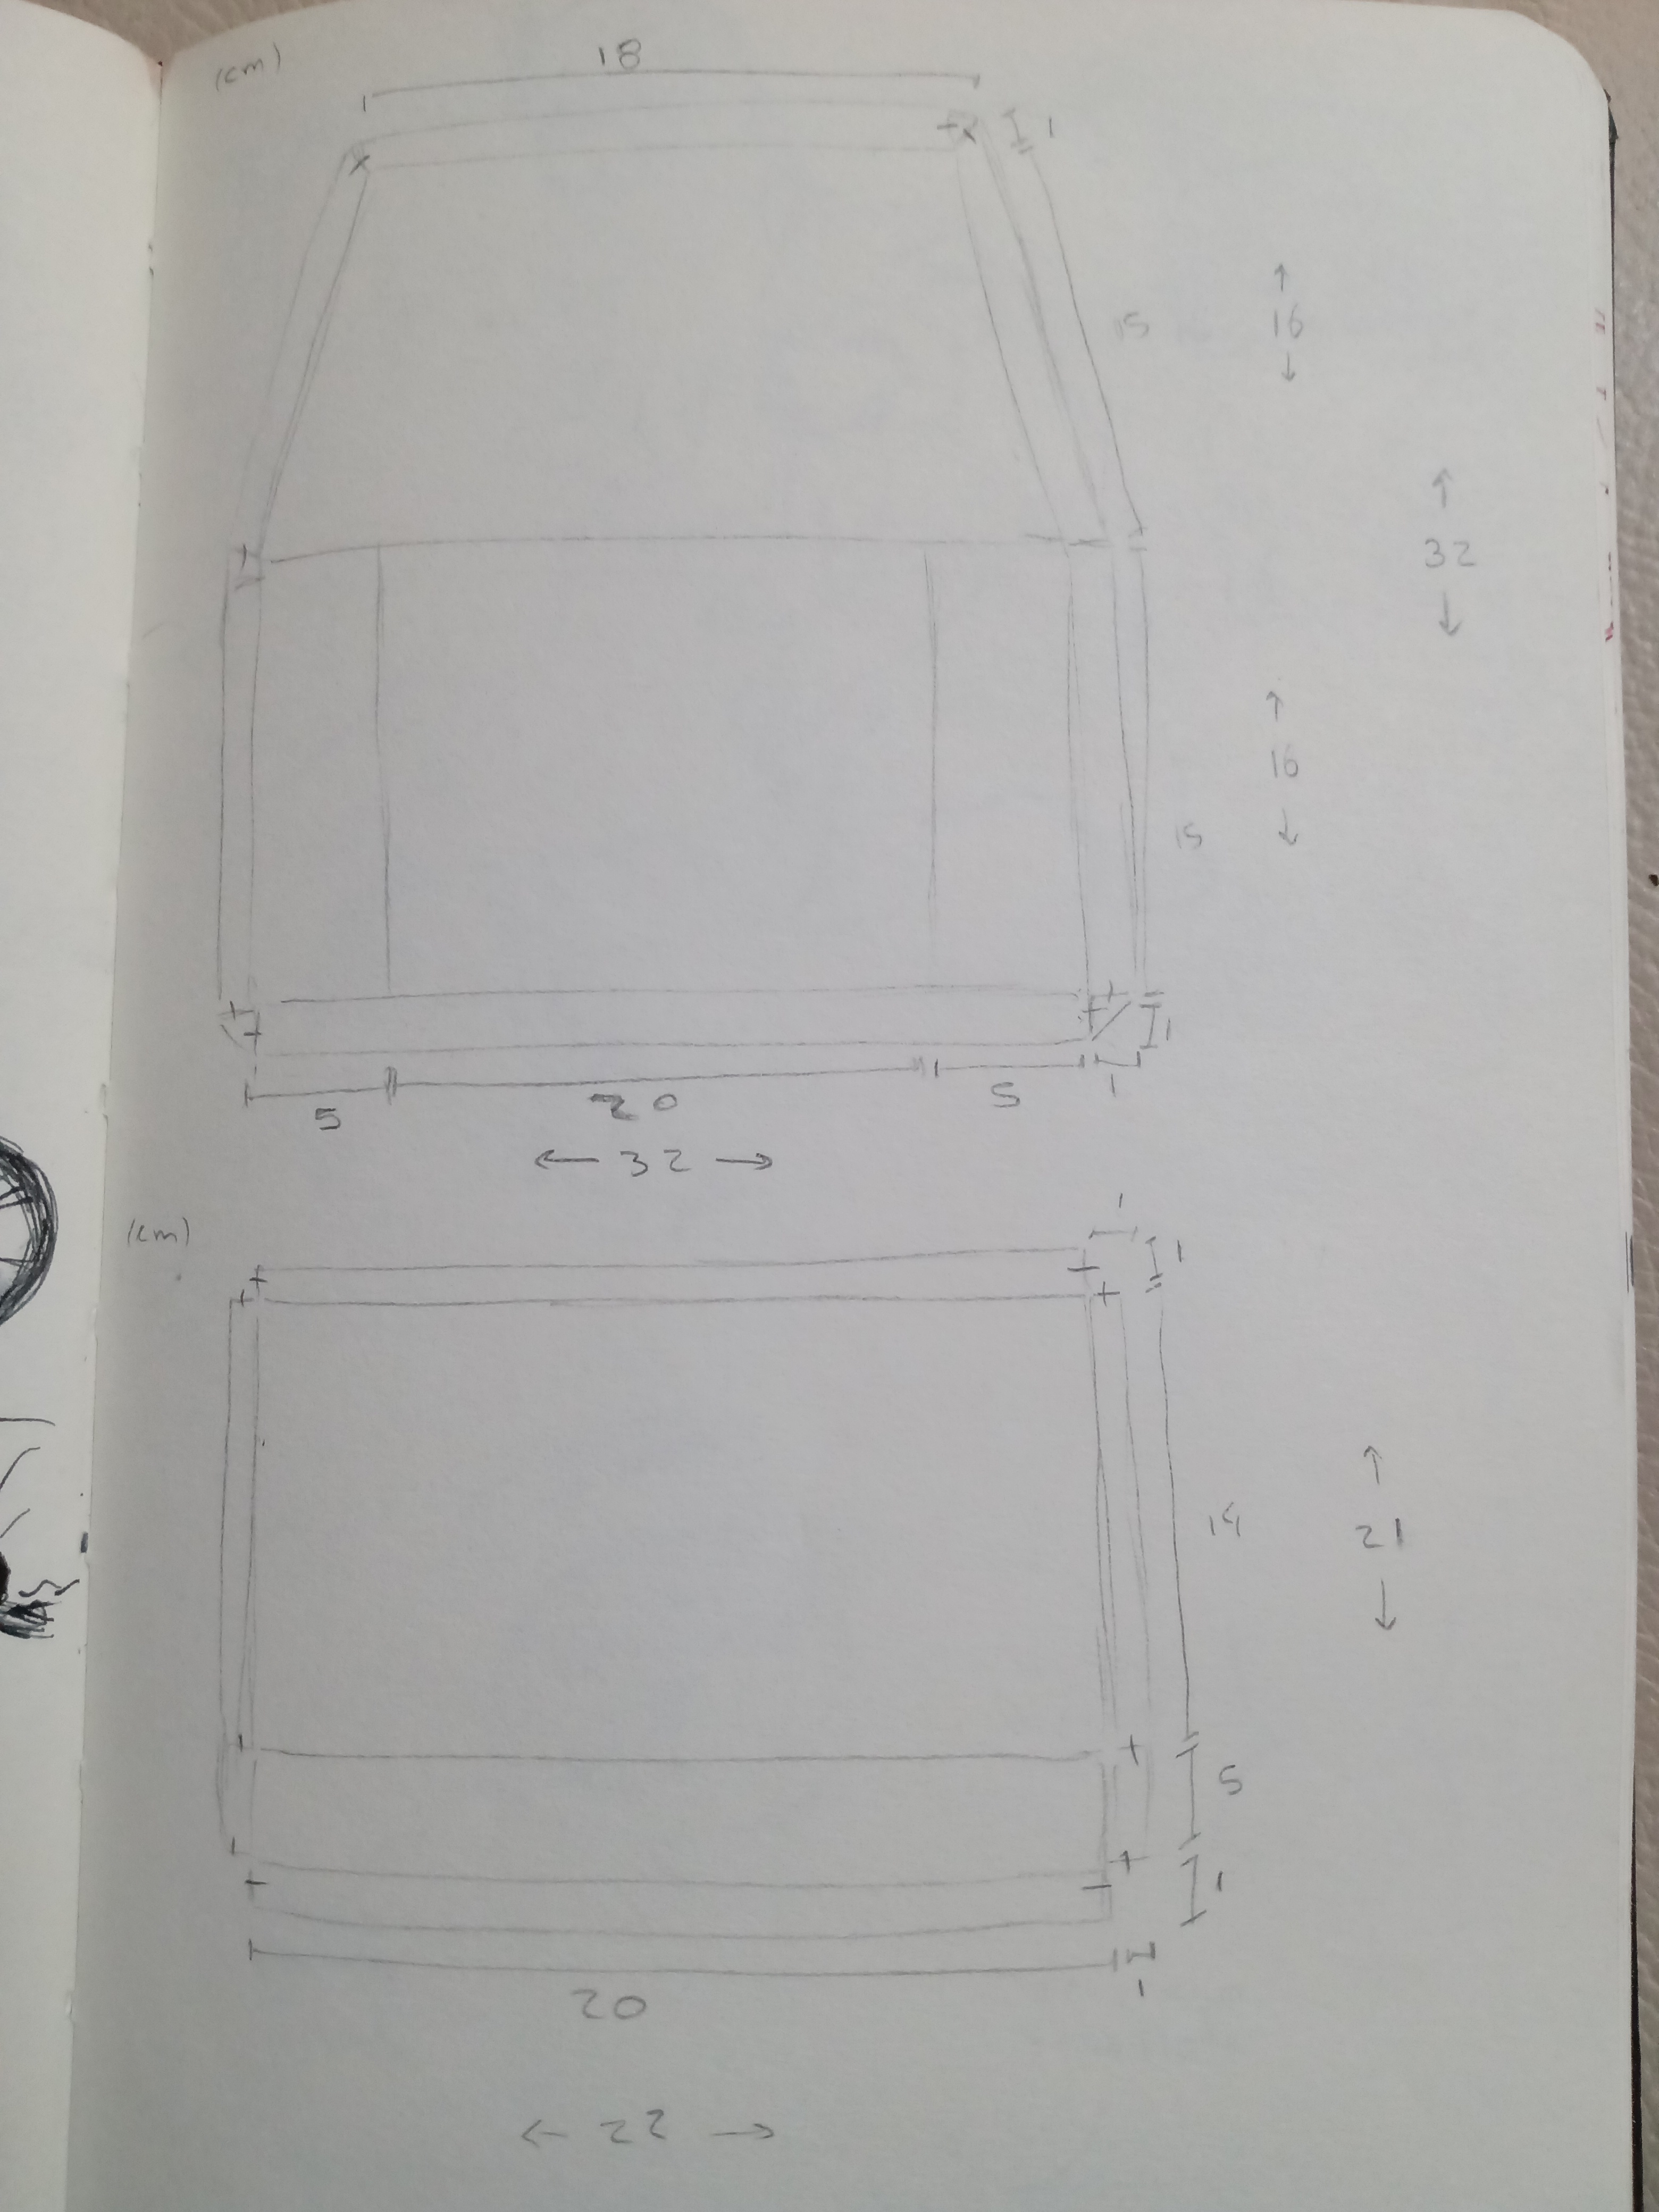 (cm)
18
1
15
16
32
16
15
1
5
20
5
1
← 32 →
(cm)
1
1
14
21
5
1
20
1
← 22 →